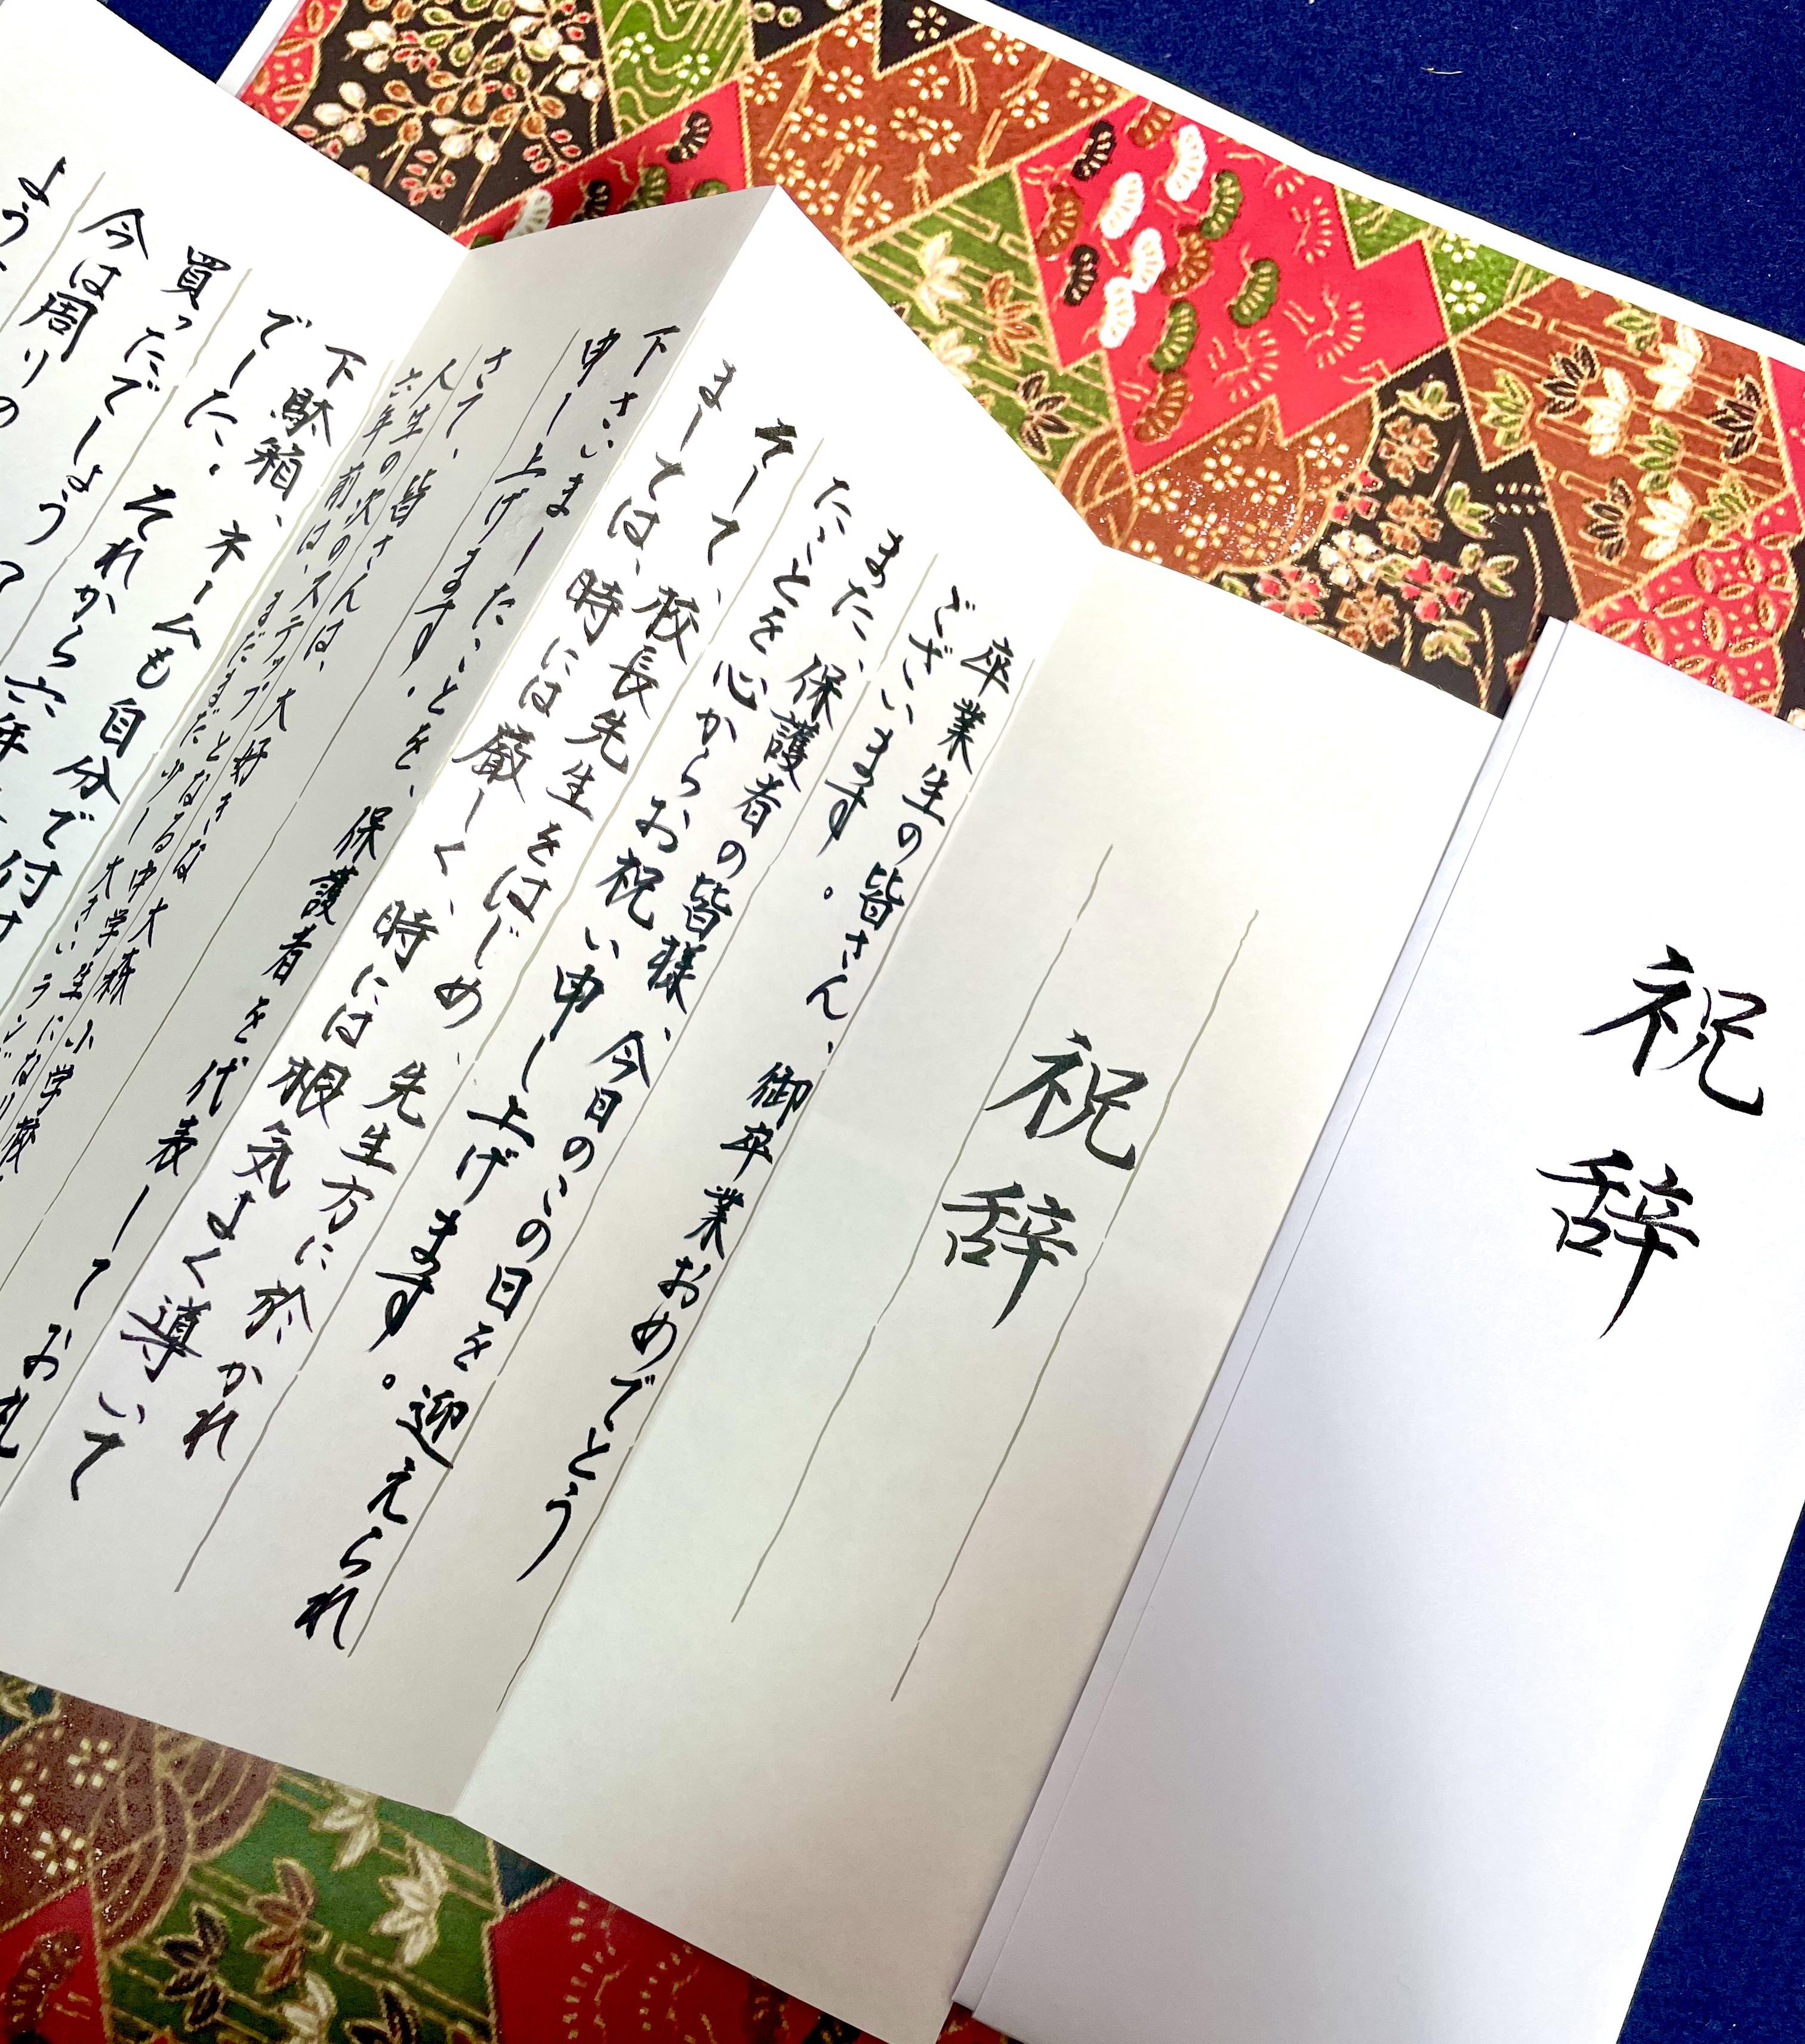 祝辞
祝辞
卒業生の皆さん、御卒業おめでとう
ございます。
また、保護者の皆様、今日のこの日を迎えられ
たことを心からお祝い申し上げます。
そして、校長先生をはじめ、先生方に於かれ
ましては、時には厳しく、時には根気よく導いて
下さいましたことを、保護者を代表してお礼
申し上げます。
さて、皆さんは、大好きな大森小学校
人生の次のステップとなる中学生になり
六年前は、まだまだ少し大きいラン
下駄箱、ネームも自分で付け
でした。それから六年
買ったでしょう
今は周りの
よう